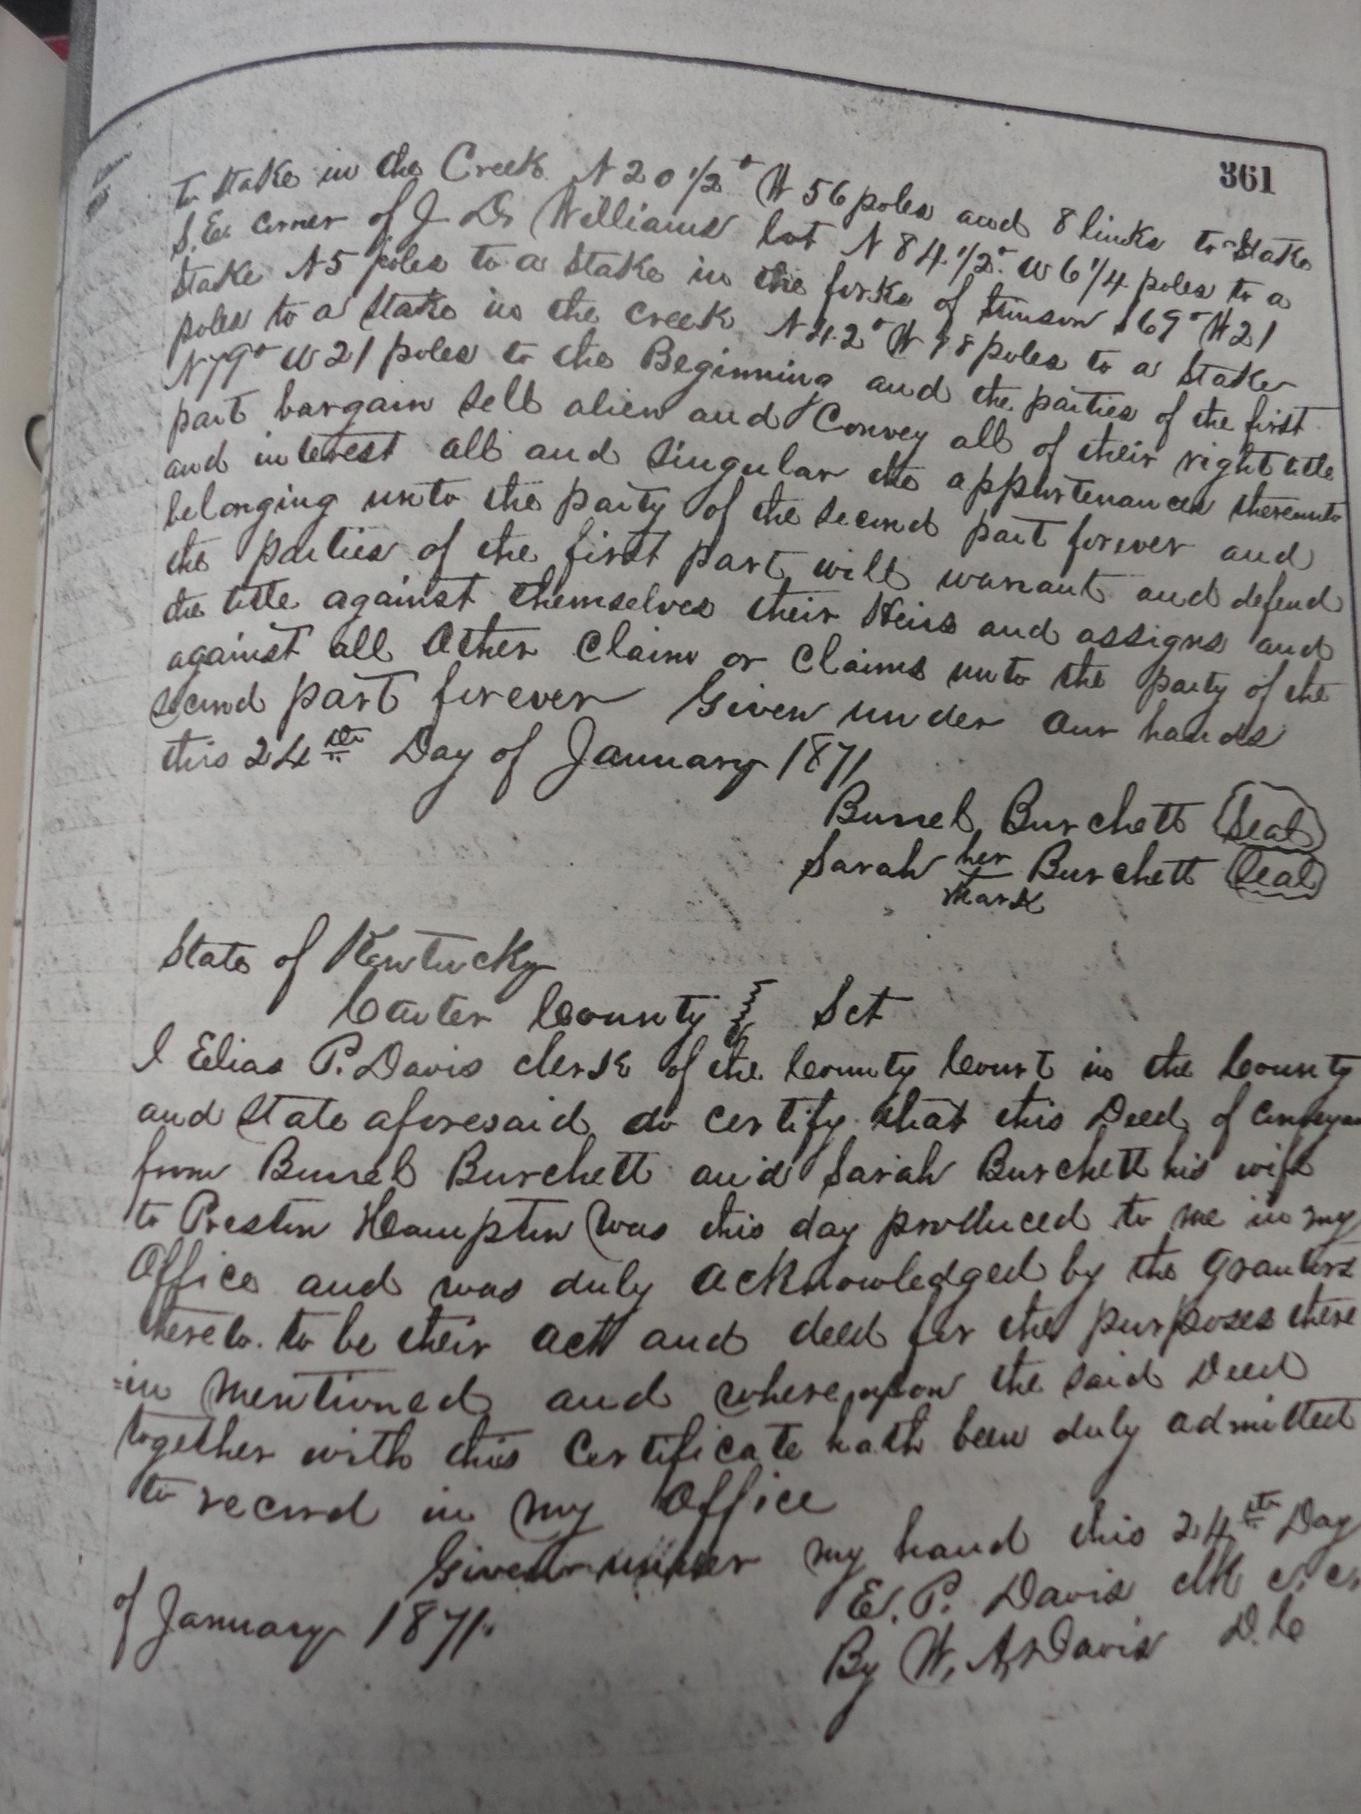 361
to stake in the Creek N 20 1/2° W 56 poles and 8 links to Stake
S.E. corner of J. D. Williams lot N 84 1/2° W 6 1/4 poles to a
stake N 5 poles to a stake in the forks of Stinson 69° W 21
poles to a stake in the creek N 42° W 98 poles to a stake
N 79° W 21 poles to the Beginning and the parties of the first
part bargain sell alien and Convey all of their right title
and interest all and singular the appurtenances thereunto
belonging unto the party of the second part forever and
the parties of the first part will warrant and defend
the title against themselves their Heirs and assigns and
against all other claim or claims unto the party of the
second part forever Given under our hands
this 24th Day of January 1871
Burrel Burchett Seal
Sarah her Burchett Seal
mark
State of Kentucky
Carter County } Sct
I Elias P. Davis clerk of the County Court in the County
and State aforesaid do certify that this Deed of
from Burrel Burchett and Sarah Burchett his wife
to Preston Hampton was this day produced to me in my
Office and was duly acknowledged by the grantors
thereto. to be their act and deed for the purposes there
=in mentioned and whereupon the said Deed
together with this Certificate hath been duly admitted
to record in my Office
Given under my hand this 24th Day
of January 1871.
E. P. Davis clk c. c.
By W. A. Davis D.C